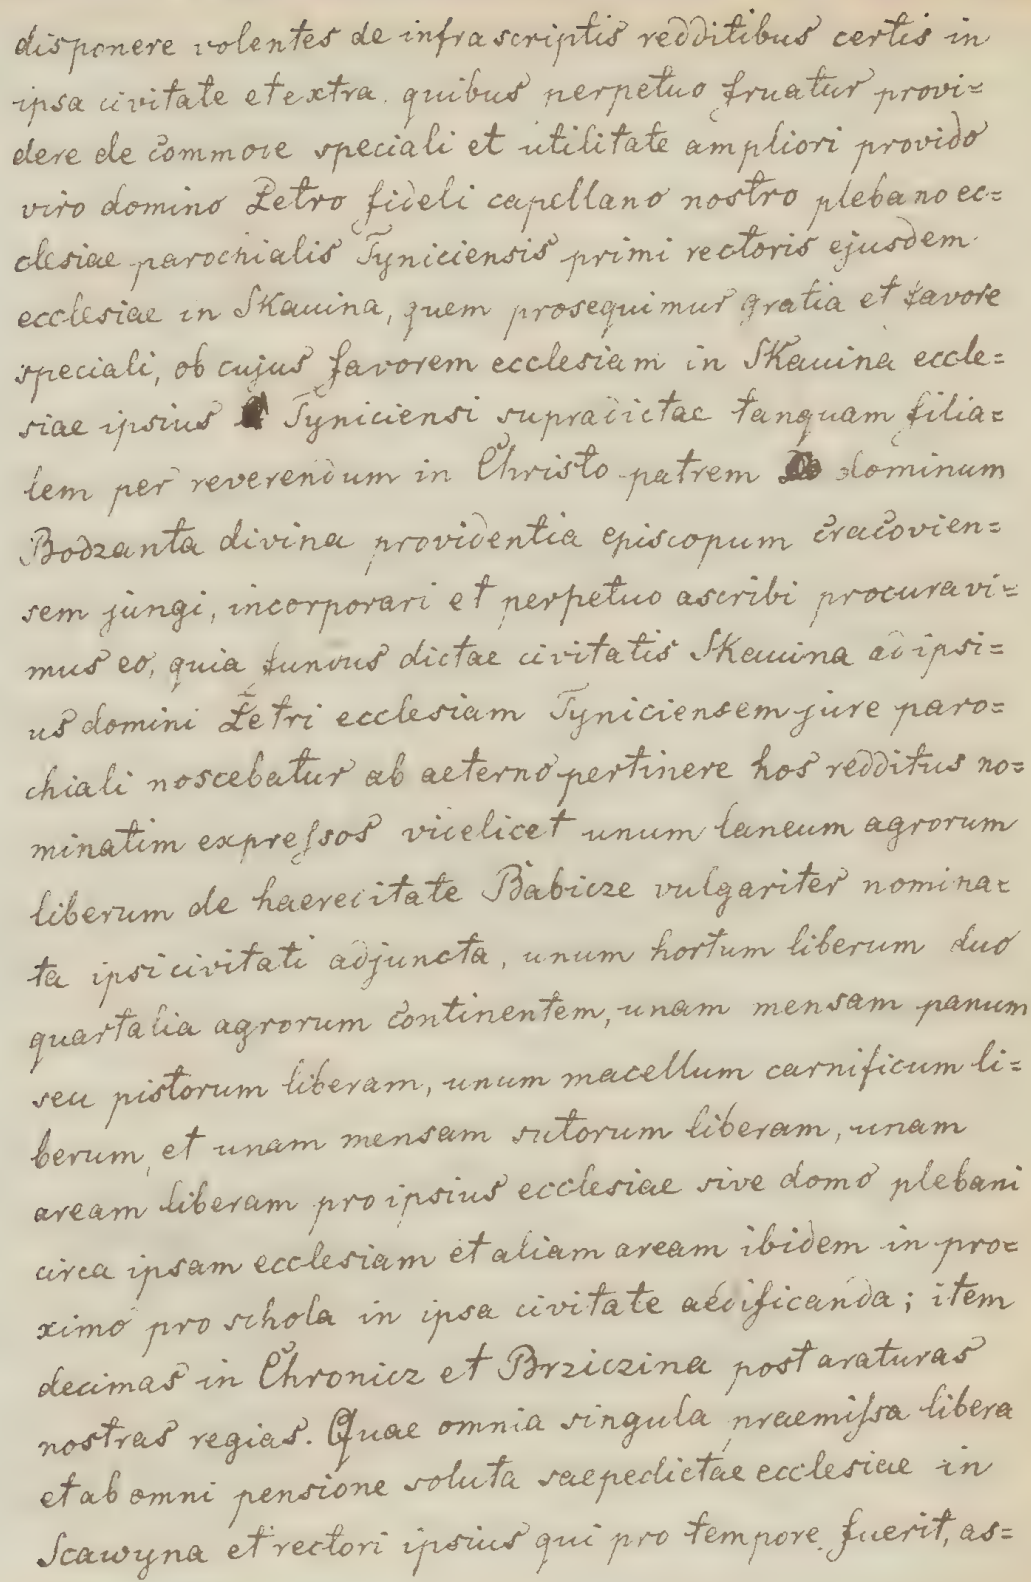 disponere volentes de infrascriptis redditibus certis in
ipsa civitate et extra quibus perpetuo fruatur provi=
dere de commode speciali et utilitate ampliori provido
viro domino Petro fideli capellano nostro plebano ec=
clesiae parochialis Tyniciensis primi rectoris ejusdem
ecclesiae in Skauina, quem prosequimur gratia et favore
speciali, ob cujus favorem ecclesiam in Skauina eccle=
siae ipsius Tyniciensi supradictae tanquam filia=
lem per reverendum in Christo patrem dominum
Bodzanta divina providentia episcopum cracovien=
sem jungi, incorporari et perpetuo ascribi procuravi=
mus eo, quia fundus dictae civitatis Skauina ad ipsi=
us domini Petri ecclesiam Tyniciensem jure paro=
chiali noscebatur ab aeterno pertinere hos redditus no=
minatim expressos videlicet unum laneum agrorum
liberum de haereditate Babicze vulgariter nomina=
ta ipsi civitati adjuncta, unum hortum liberum duo
quartalia agrorum continentem, unam mensam panum
seu pistorum liberam, unum macellum carnificum li=
berum, et unam mensam sutorum liberam, unam
aream liberam pro ipsius ecclesiae sive domo plebani
circa ipsam ecclesiam et aliam aream ibidem in pro=
ximo pro schola in ipsa civitate aedificanda; item
decimas in Chronicz et Brziczina post araturas
nostras regias. Quae omnia singula praemissa libera
et ab omni pensione soluta saepedictae ecclesiae in
Scawyna et rectori ipsius qui pro tempore fuerit, as=